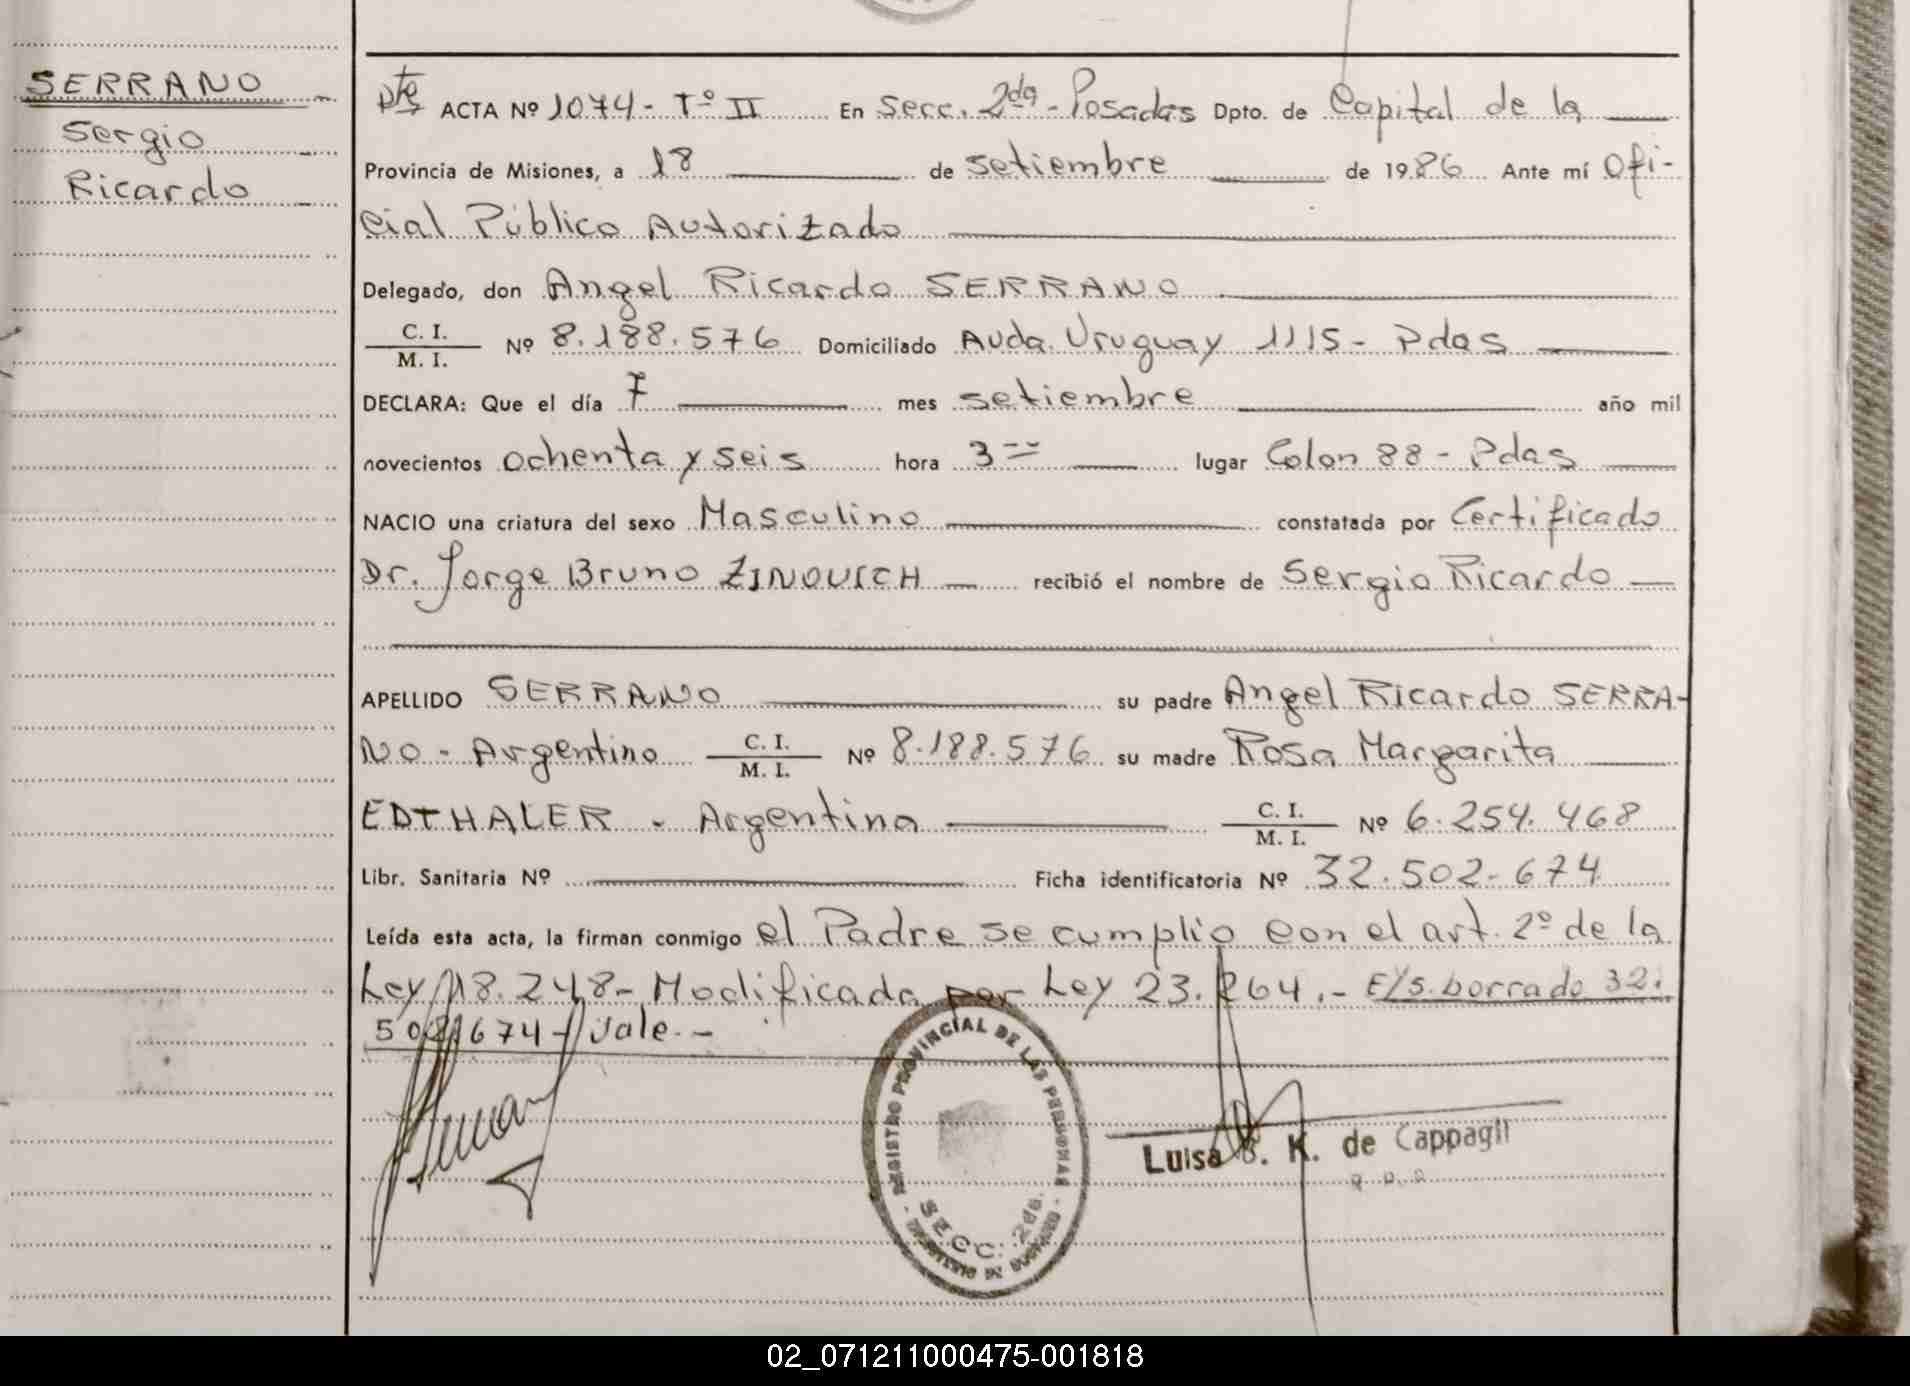 SERRANO
Sergio
Ricardo
ACTA Nº 1074 - Tº II En Secc. 2da - Posadas Dpto. de Capital de la
Provincia de Misiones, a 18 de setiembre de 1986 Ante mí Ofi-
cial Público Autorizado
Delegado, don Angel Ricardo SERRANO
C. I.
M. I. Nº 8.188.576 Domiciliado Avda. Uruguay 1115 - Pdas
DECLARA: Que el día 7 mes setiembre año mil
novecientos ochenta y seis hora 3 lugar Colon 88 - Pdas
NACIO una criatura del sexo Masculino constatada por Certificado
Dr. Jorge Bruno ZINOVICH recibió el nombre de Sergio Ricardo
APELLIDO SERRANO su padre Angel Ricardo SERRA-
NO - Argentino C. I. M. I. Nº 8.188.576 su madre Rosa Margarita
EDTHALER - Argentina C. I. M. I. Nº 6.254.468
Libr. Sanitaria Nº Ficha identificatoria Nº 32.502.674
Leída esta acta, la firman conmigo el Padre se cumplio con el art. 2º de la
Ley 18.248 - Modificada por Ley 23.264.- E/S. borrado 32.
502674 - Vale.-
REGISTRO PROVINCIAL DE LAS PERSONAS
SECC. 2da.
Luisa K. de Cappagli
02_071211000475-001818